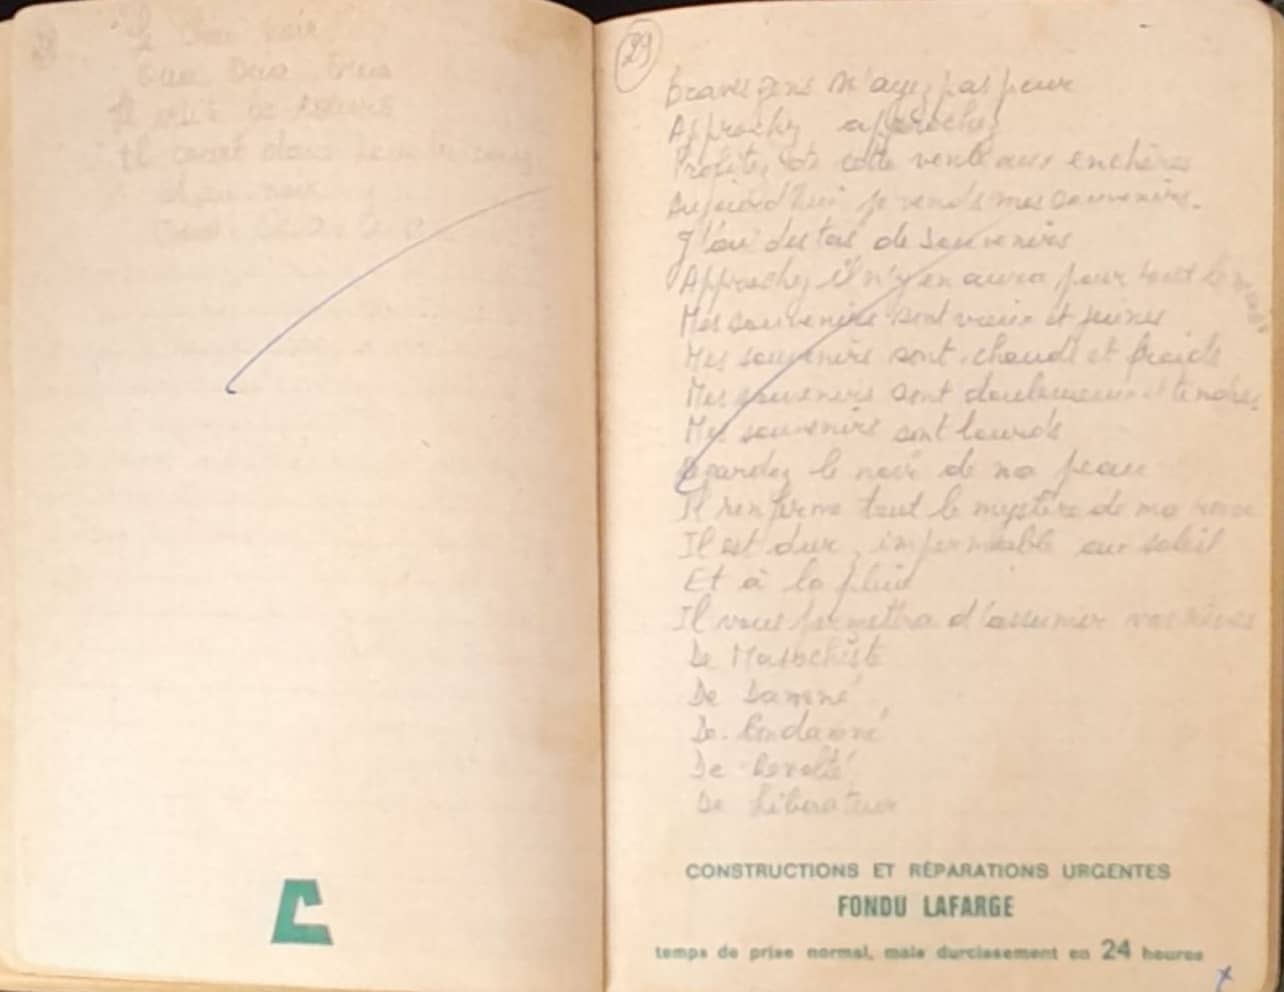 Il
Il
Il court dans
noir
29
Braves gens n'ayez pas peur
Approchez approchez
Profitez de cette vente aux enchères
Aujourd'hui je vends mes souvenirs.
J'ai des tas de souvenirs
Approchez il n'y en aura pour tout le monde
Mes souvenirs sont vieux et jeunes
Mes souvenirs sont chauds et froids
Mes souvenirs sont douloureux et tendres
Mes souvenirs sont lourds
Regardez le noir de ma peau
Il renferme tout le mystère de ma race
Il est dur, imperméable au soleil
Et à la pluie
Il vous permettra d'assumer vos rêves
De Masochiste
De Damné
De Condamné
De Revolté
De Liberateur
CONSTRUCTIONS ET RÉPARATIONS URGENTES
FONDU LAFARGE
temps de prise normal, mais durcissement en 24 heures